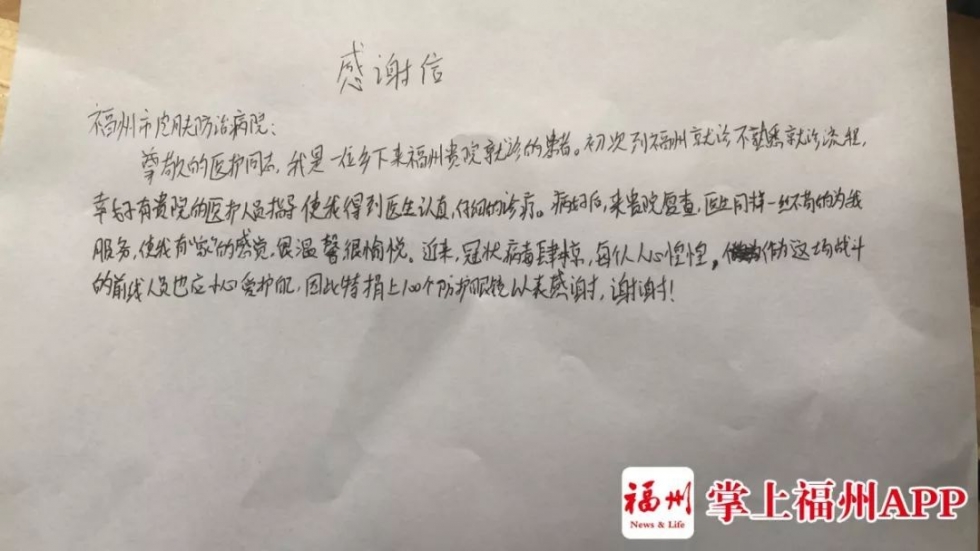 感谢信
福州市皮肤防治病院：
尊敬的医护同志，我是一位乡下来福州贵院就诊的患者。初次到福州就诊不熟悉就诊流程，
幸好有贵院的医护人员指导使我得到医生认真，仔细的诊疗。病好后，来贵院复查，医生同样一丝不苟的为我
服务，使我有“家”的感觉，很温馨很愉悦。近来，冠状病毒肆掠，每个人人心惶惶，作为这场战斗
的前线人员也应小心爱护
因此特捐上100个防护眼镜以表感谢，谢谢！
福州
News & Life
掌上福州APP